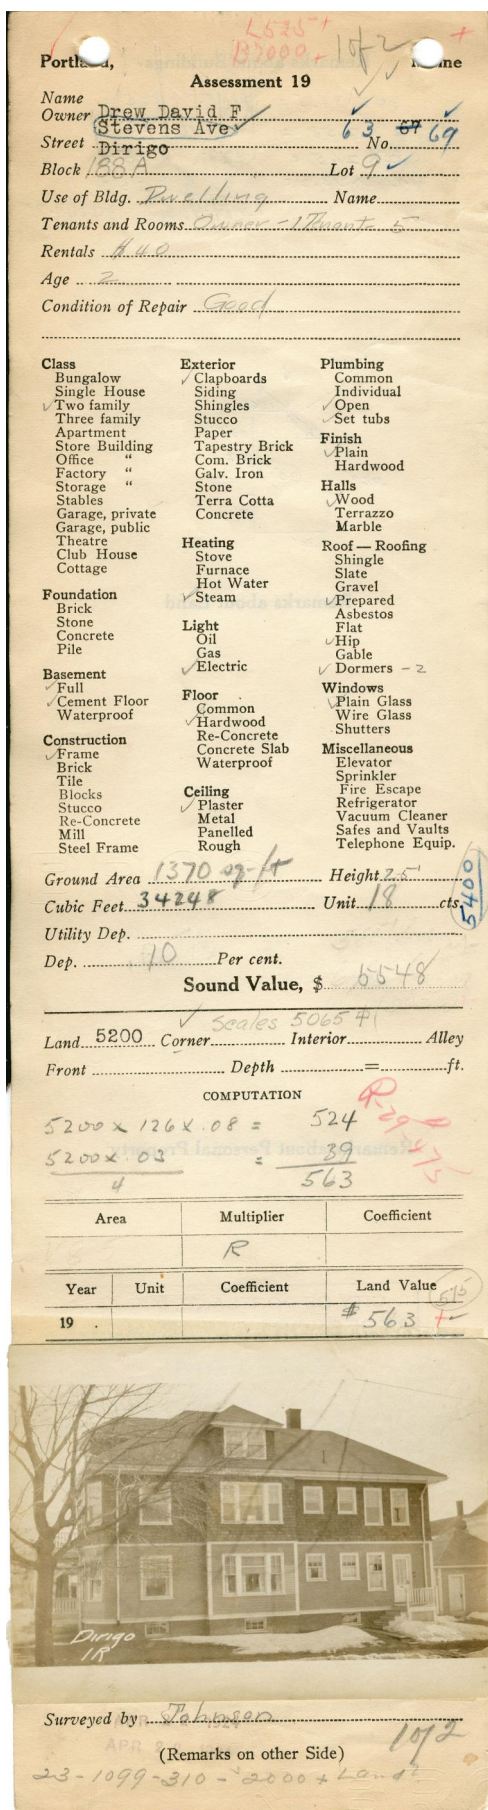 L525+
B7000+ 1 of 2 +
Portland, Maine
Assessment 19
Name
Owner Drew David F
Stevens Ave 63 67 69
Street Dirigo No.
Block 188A Lot 9
Use of Bldg. Dwelling Name
Tenants and Rooms Owner - 1 Tenant - 5
Rentals $40
Age 2
Condition of Repair Good
Class
Bungalow
Single House
✓Two family
Three family
Apartment
Store Building
Office "
Factory "
Storage "
Stables
Garage, private
Garage, public
Theatre
Club House
Cottage
Foundation
Brick
Stone
Concrete
Pile
Basement
✓Full
✓Cement Floor
Waterproof
Construction
✓Frame
Brick
Tile
Blocks
Stucco
Re-Concrete
Mill
Steel Frame
Exterior
✓Clapboards
Siding
Shingles
Stucco
Paper
Tapestry Brick
Com. Brick
Galv. Iron
Stone
Terra Cotta
Concrete
Heating
Stove
Furnace
Hot Water
✓Steam
Light
Oil
Gas
✓Electric
Floor
Common
✓Hardwood
Re-Concrete
Concrete Slab
Waterproof
Ceiling
✓Plaster
Metal
Panelled
Rough
Plumbing
Common
Individual
✓Open
✓Set tubs
Finish
✓Plain
Hardwood
Halls
✓Wood
Terrazzo
Marble
Roof — Roofing
Shingle
Slate
Gravel
✓Prepared
Asbestos
Flat
✓Hip
Gable
✓Dormers - 2
Windows
✓Plain Glass
Wire Glass
Shutters
Miscellaneous
Elevator
Sprinkler
Fire Escape
Refrigerator
Vacuum Cleaner
Safes and Vaults
Telephone Equip.
Ground Area 1370 sq-ft Height 25'
Cubic Feet 34248 Unit 18 cts.
5400
Utility Dep.
Dep. 10 Per cent.
Sound Value, $ 5548
✓ Scales 5065
Land 5200 Corner Interior Alley
Front Depth = ft.
COMPUTATION
5200 x 126 x .08 = 524
5200 x .03 = 39
4 563
Area Multiplier Coefficient
R
Year Unit Coefficient Land Value 575
19 . $563 +
Dirigo
1R
Surveyed by Johnson
APR
1 of 2
(Remarks on other Side)
23-1099-310 - 2000 + Land